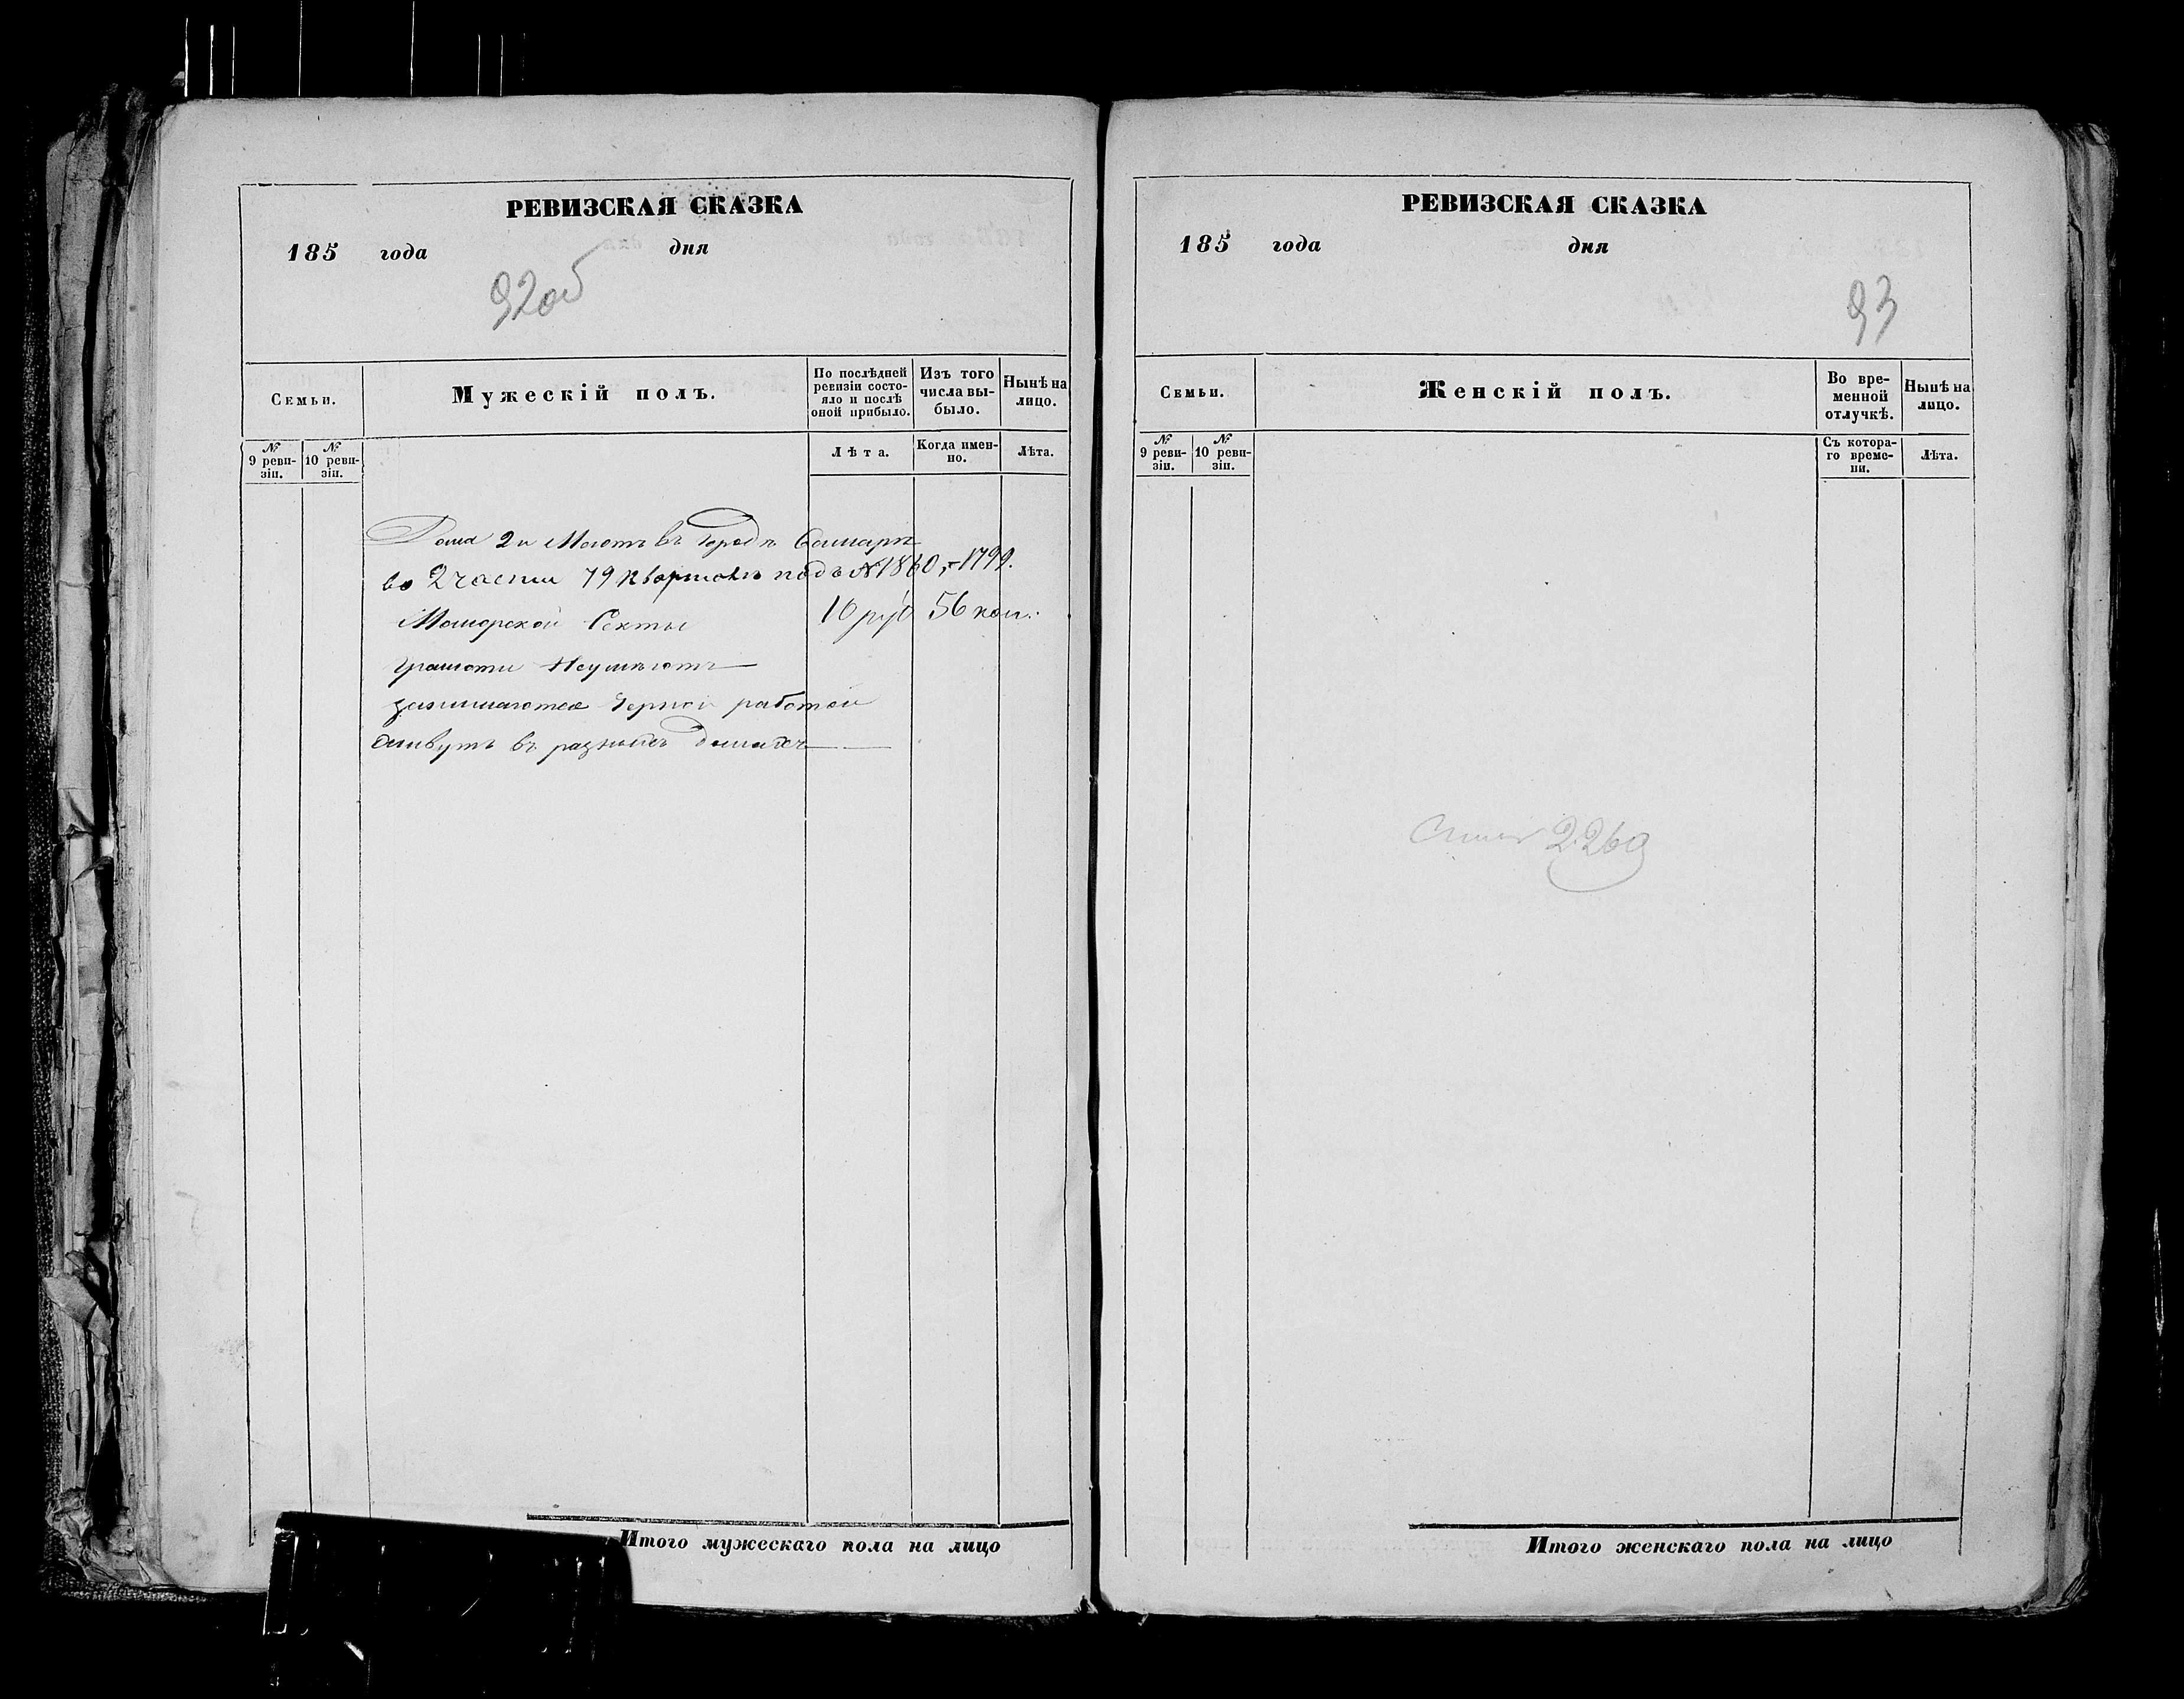 РЕВИЗСКАЯ СКАЗКА
185 года дня
92об
Семьи.
Мужескій полъ.
По послѣдней ревизіи состояло и послѣ оной прибыло.
Изъ того числа выбыло.
Нынѣ на лицо.
№ 9 ревизіи.
№ 10 ревизіи.
Лѣта.
Когда именно.
Лѣта.
Дома 2 и Меютъ въ Городѣ Самарѣ
во 2 части 79 Кварталѣ подъ № 1860, 1799.
Секты 10 руб 56 коп.
грамоти Неумѣютъ
занимаются Черной работой
Живутъ въ разныхъ домахъ
Итого мужескаго пола на лицо
РЕВИЗСКАЯ СКАЗКА
185 года дня
93
Семьи.
Женскій полъ.
Во временной отлучкѣ.
Нынѣ на лицо.
№ 9 ревизіи.
№ 10 ревизіи.
Съ котораго времени.
Лѣта.
2260
Итого женскаго пола на лицо